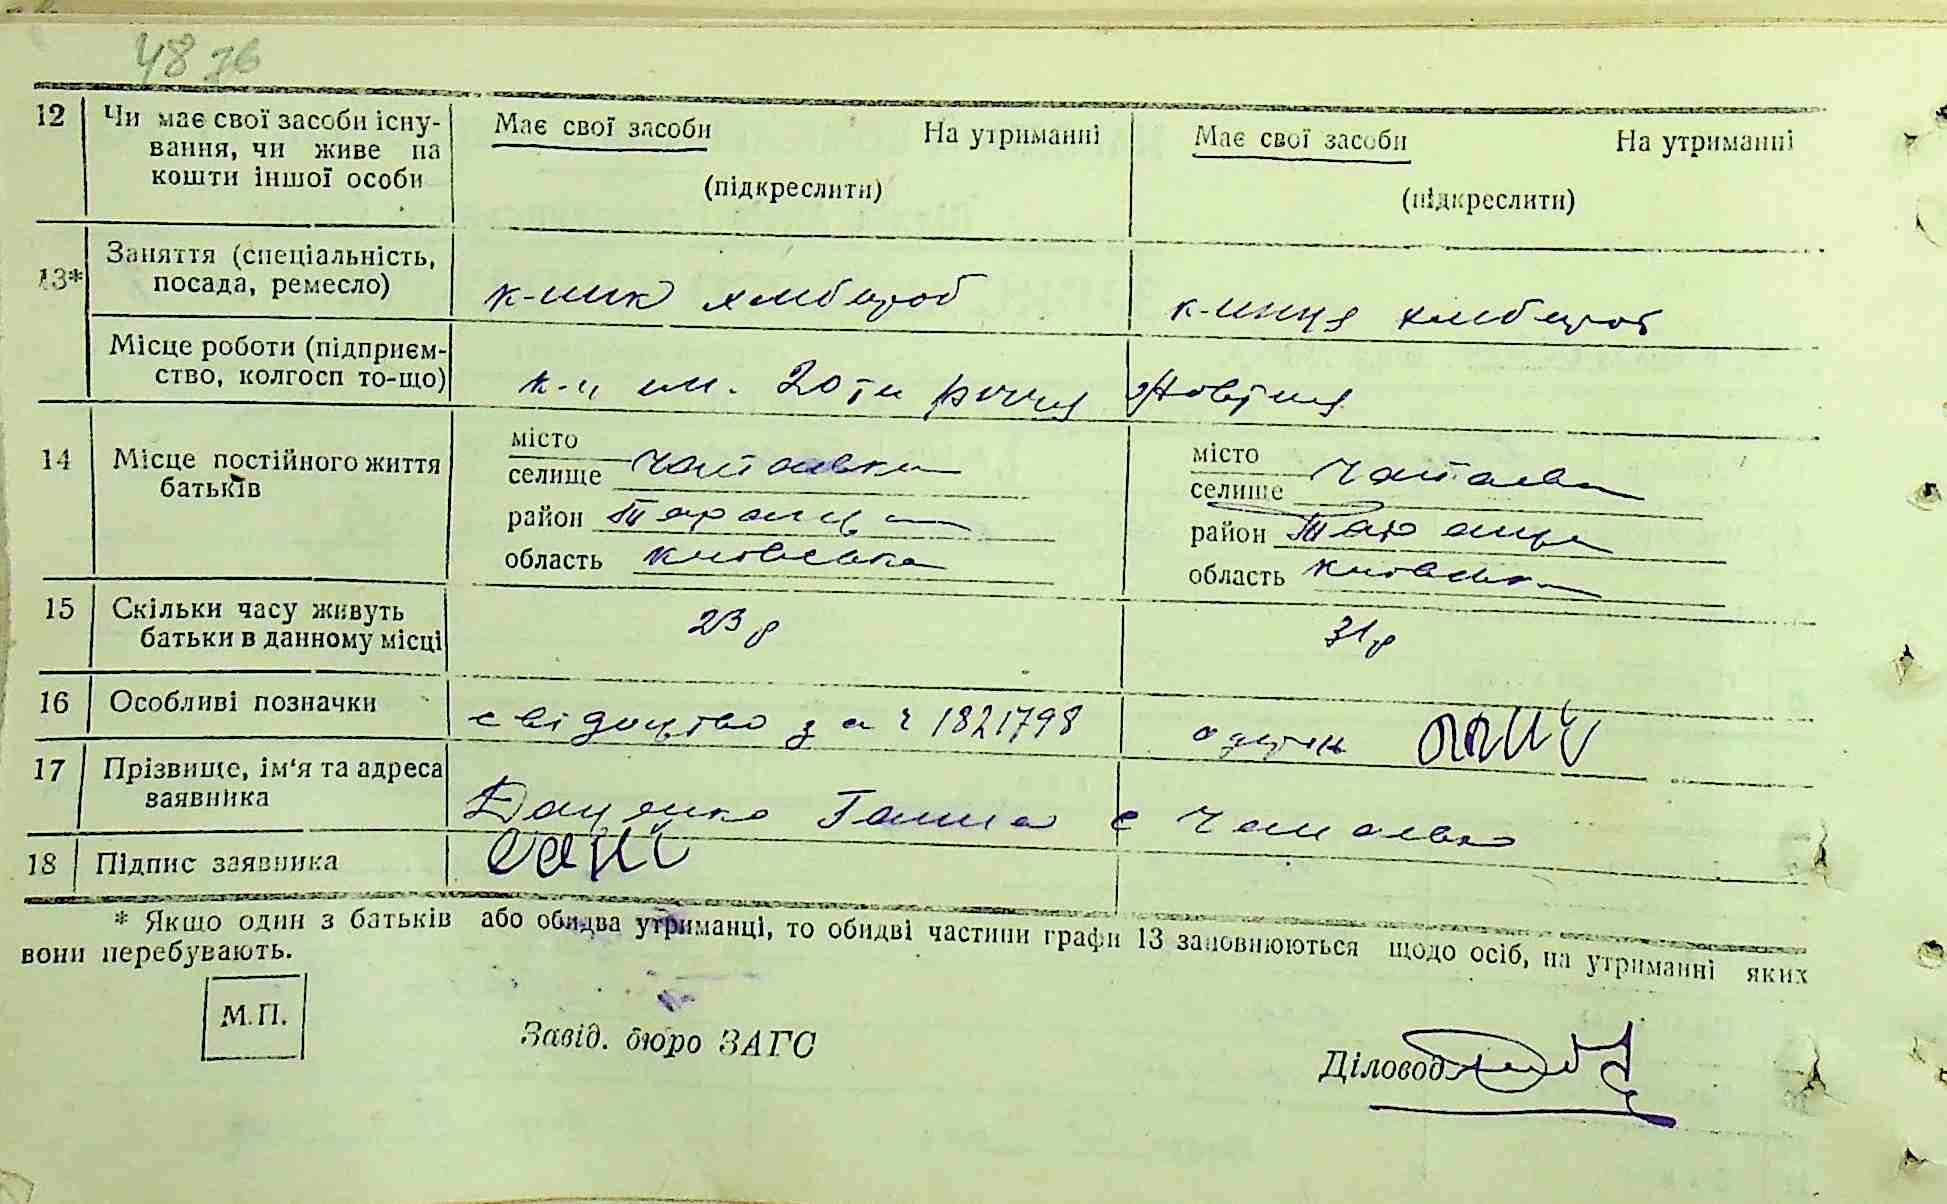 48 зв
12 Чи має свої засоби існу- Має свої засоби На утриманні Має свої засоби На утриманні
вання, чи живе на
кошти іншої особи (підкреслити) (підкреслити)
13* Заняття (спеціальність,
посада, ремесло) к-ник хлібороб к-ниця хлібороб
Місце роботи (підприєм-
ство, колгосп то-що) к-п им. 20 ти річчя Жовтня
14 Місце постійного життя місто місто
батьків селище Чапаєвка селище Чапаєвка
район Таращан район Таращан
область Київська область Київська
15 Скільки часу живуть
батьки в данному місці 23 р 31 р
16 Особливі позначки свідоцтво за № 1821798 одерж
17 Прізвище, ім'я та адреса
заявника Даценко Ганна с Чапаєвка
18 Підпис заявника
* Якщо один з батьків або обидва утриманці, то обидві частини графи 13 заповнюються щодо осіб, на утриманні яких
вони перебувають.
М.П.
Завід. бюро ЗАГС
Діловод